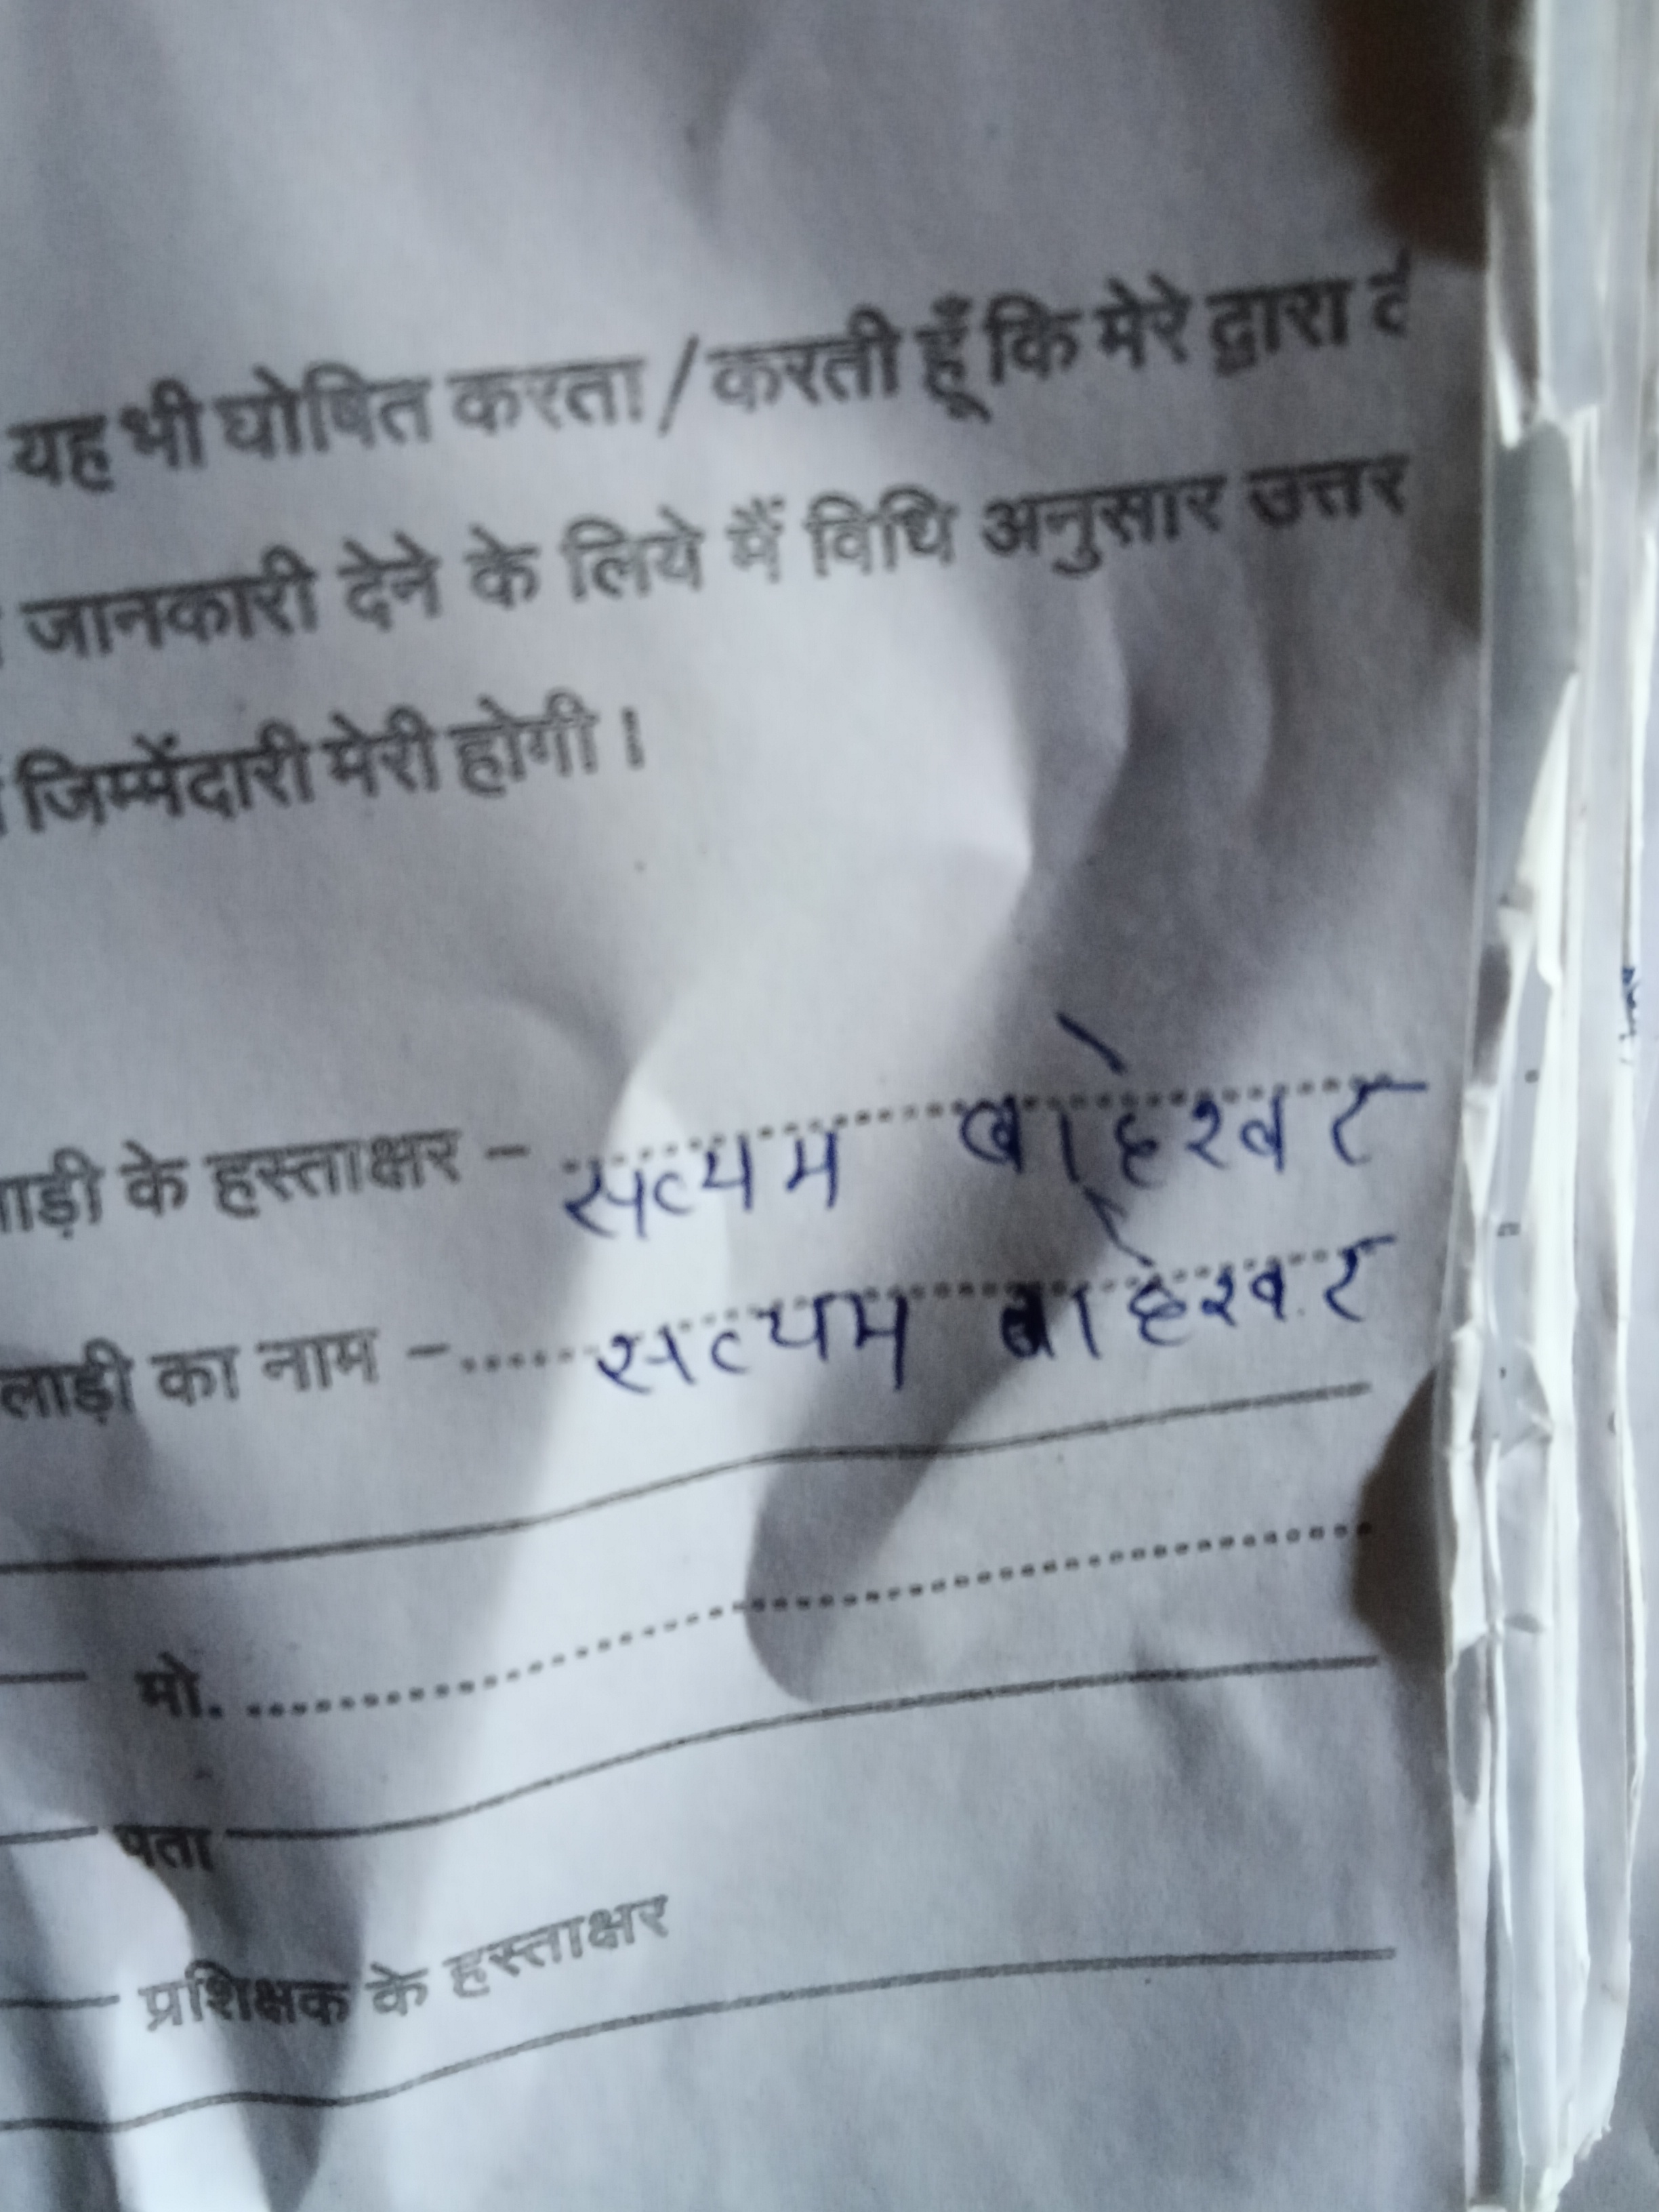 यह भी घोषित करता / करती हूँ कि मेरे द्वारा
जानकारी देने के लिये मैं विधि अनुसार उत्तर
जिम्मेंदारी मेरी होगी ।
के हस्ताक्षर - सत्यम बाहेश्वर
का नाम - सत्यम बाहेश्वर
मो.
पता
प्रशिक्षक के हस्ताक्षर